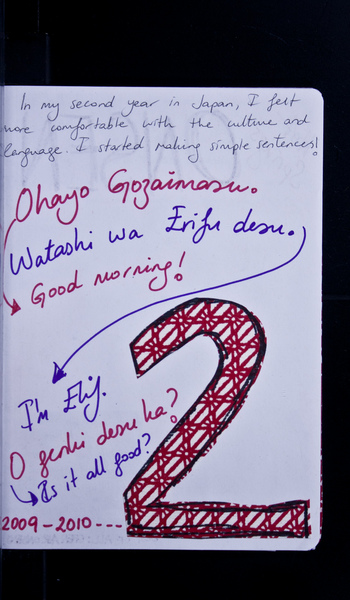 In my second year in Japan, I felt
more comfortable with the culture and
language. I started making simple sentences!
Ohayo Gozaimasu.
Watashi wa Erifu desu.
Good morning!
I'm Elif.
O genki desu ka?
Is it all good?
2
2009-2010---